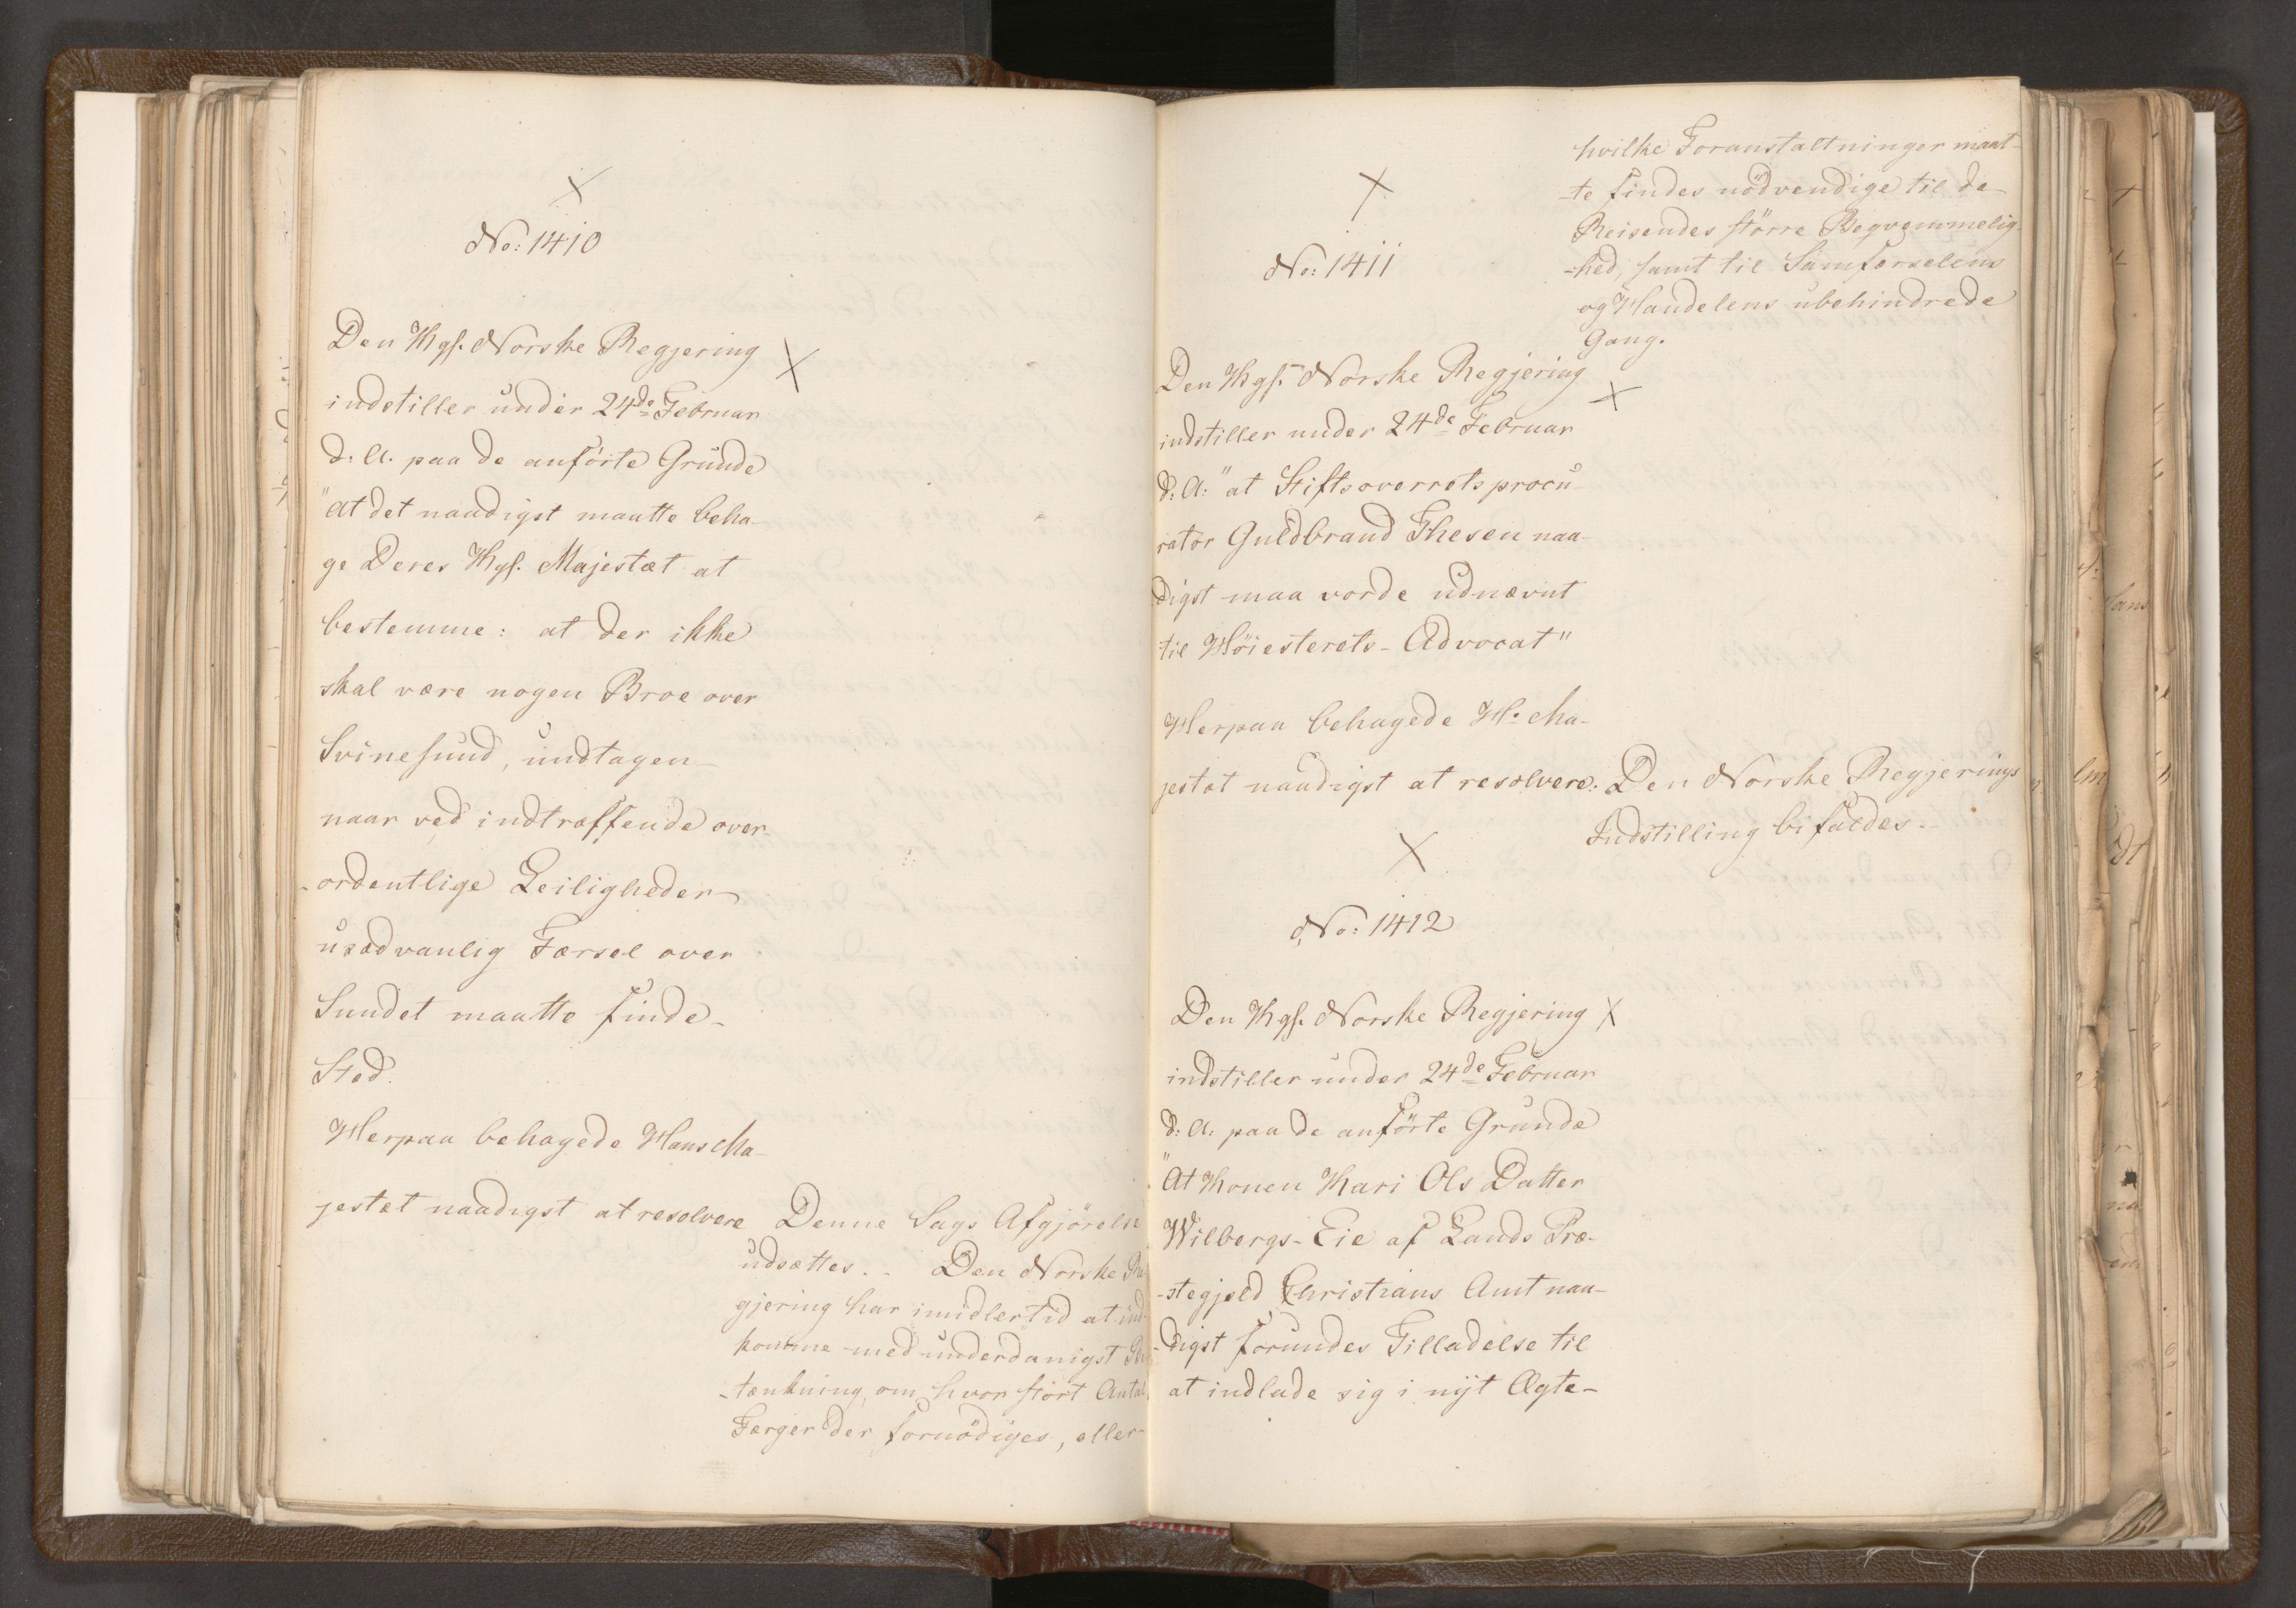 No: 1410
Den Kgs. Norske Regjering
indstiller under 24de Februar
d: A. paa de anförte Grunde
"at det naadigst maatte beha-
ge Deres Kgs. Majestæt at
bestemme: at der ikke
skal være nogen Broe over
Svinesund, undtagen
naar ved indtræffende over-
-ordentlige Leiligheder
usædvanlig Færsel over
Sundet maatte finde
Sted.
Herpaa behagede Hans Ma-
jestæt naadigst at resolvere Denne Sags Afgjörelse
udsættes. - Den Norske Re
gjering har imidlertid at ind
komme med underdanigst Be
-tænkning, om hvor stort Antal
Færger der fornödiges, eller
hvilke Foranstaltninger maat-
-te findes nödvendige til de
Reisendes större Beqvemmelig-
-hed, samt til Samfærselens
og Handelens ubehindrede
Gang.
No: 1411
Den Kgs. Norske Regjering
indstiller under 24de Februar
d: A: "at Stiftsoverretsprocu-
rator Guldbrand Thesen naa-
digst maa vorde udnævnt
til Höiesterets-Advocat"
Herpaa behagede H. Ma-
jestæt naadigst at resolvere: Den Norske Regjerings
Indstilling bifaldes.
No: 1412
Den Kgs. Norske Regjering
indstiller under 24de Februar
d: A: paa de anförte Grunde
"At Konen Kari Ols Datter
Wilbergs-Eie af Lands Præ-
-stegjeld Christians Amt naa-
-digst forundes Tilladelse til
at indlade sig i nyt Ægte-